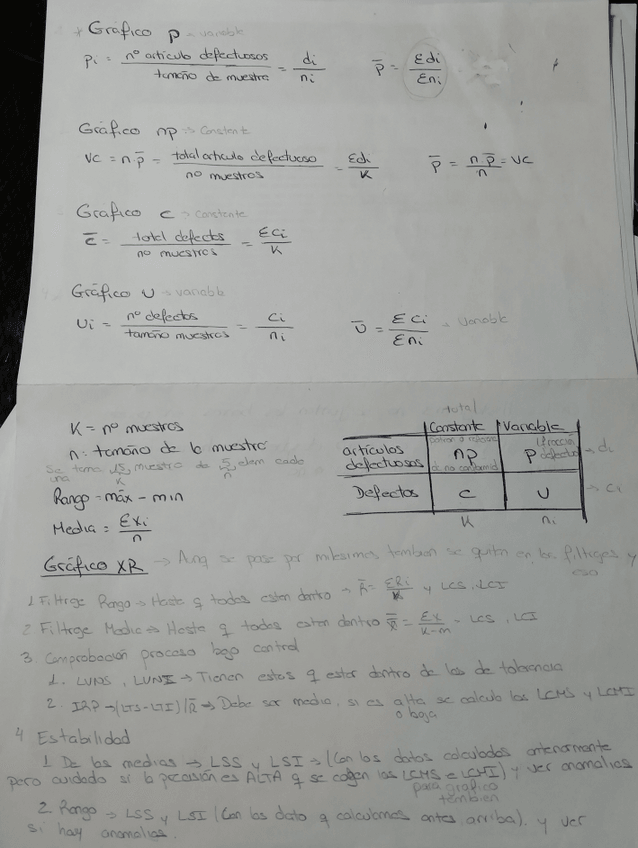 * Gráfico p → variable
Pi = nº artículo defectuosos / tamaño de muestra = di / ni    p̄ = Σdi / Σni
Gráfico np → Constante
VC = n·p̄ = total artículo defectuoso / no muestros = Σdi / K    p̄ = n·p̄ / n = VC
Gráfico c → Constante
c̄ = total defectos / no muestros = Σci / K
Gráfico U → variable
Ui = nº defectos / tamaño muestros = ci / ni    Ū = Σci / Σni → Variable
K = nº muestros
n = tamaño de la muestra
Se toma 15 muestro de 5 elem cada una
K n
Rango = máx - min
Media = Σxi / n
total
Constante Variable
artículos defectuosos np p → di
Defectos c U → ci
K ni
Gráfico XR → Aunq se pase por milesimas tambien se quita en los filtrges y eso
1 Filtrge Rango → Hasta q todos esten dentro → R̄ = ΣRi / K y LCS, LCI
2 Filtrge Media → Hasta q todos esten dentro x̿ = Σx / K-m → LCS, LCI
3 Comprobación proceso bajo control
1. LUNS, LUNI → Tienen estos q estar dentro de los de tolerancia
2. IRP → (LTS-LTI)/R̄ → Debe ser media, si es alta se calcula los LCMS y LCMI
o baja
4 Estabilidad
1 De las medias → LSS y LSI → (Con los datos calculados anteriormente
pero cuidado si la precisión es ALTA q se cogen los LCMS e LCMI) y ver anomalias
para grafico
tambien
2 Rango → LSS y LSI (Con los dato q calculamos antes arriba). y ver
si hay anomalias.